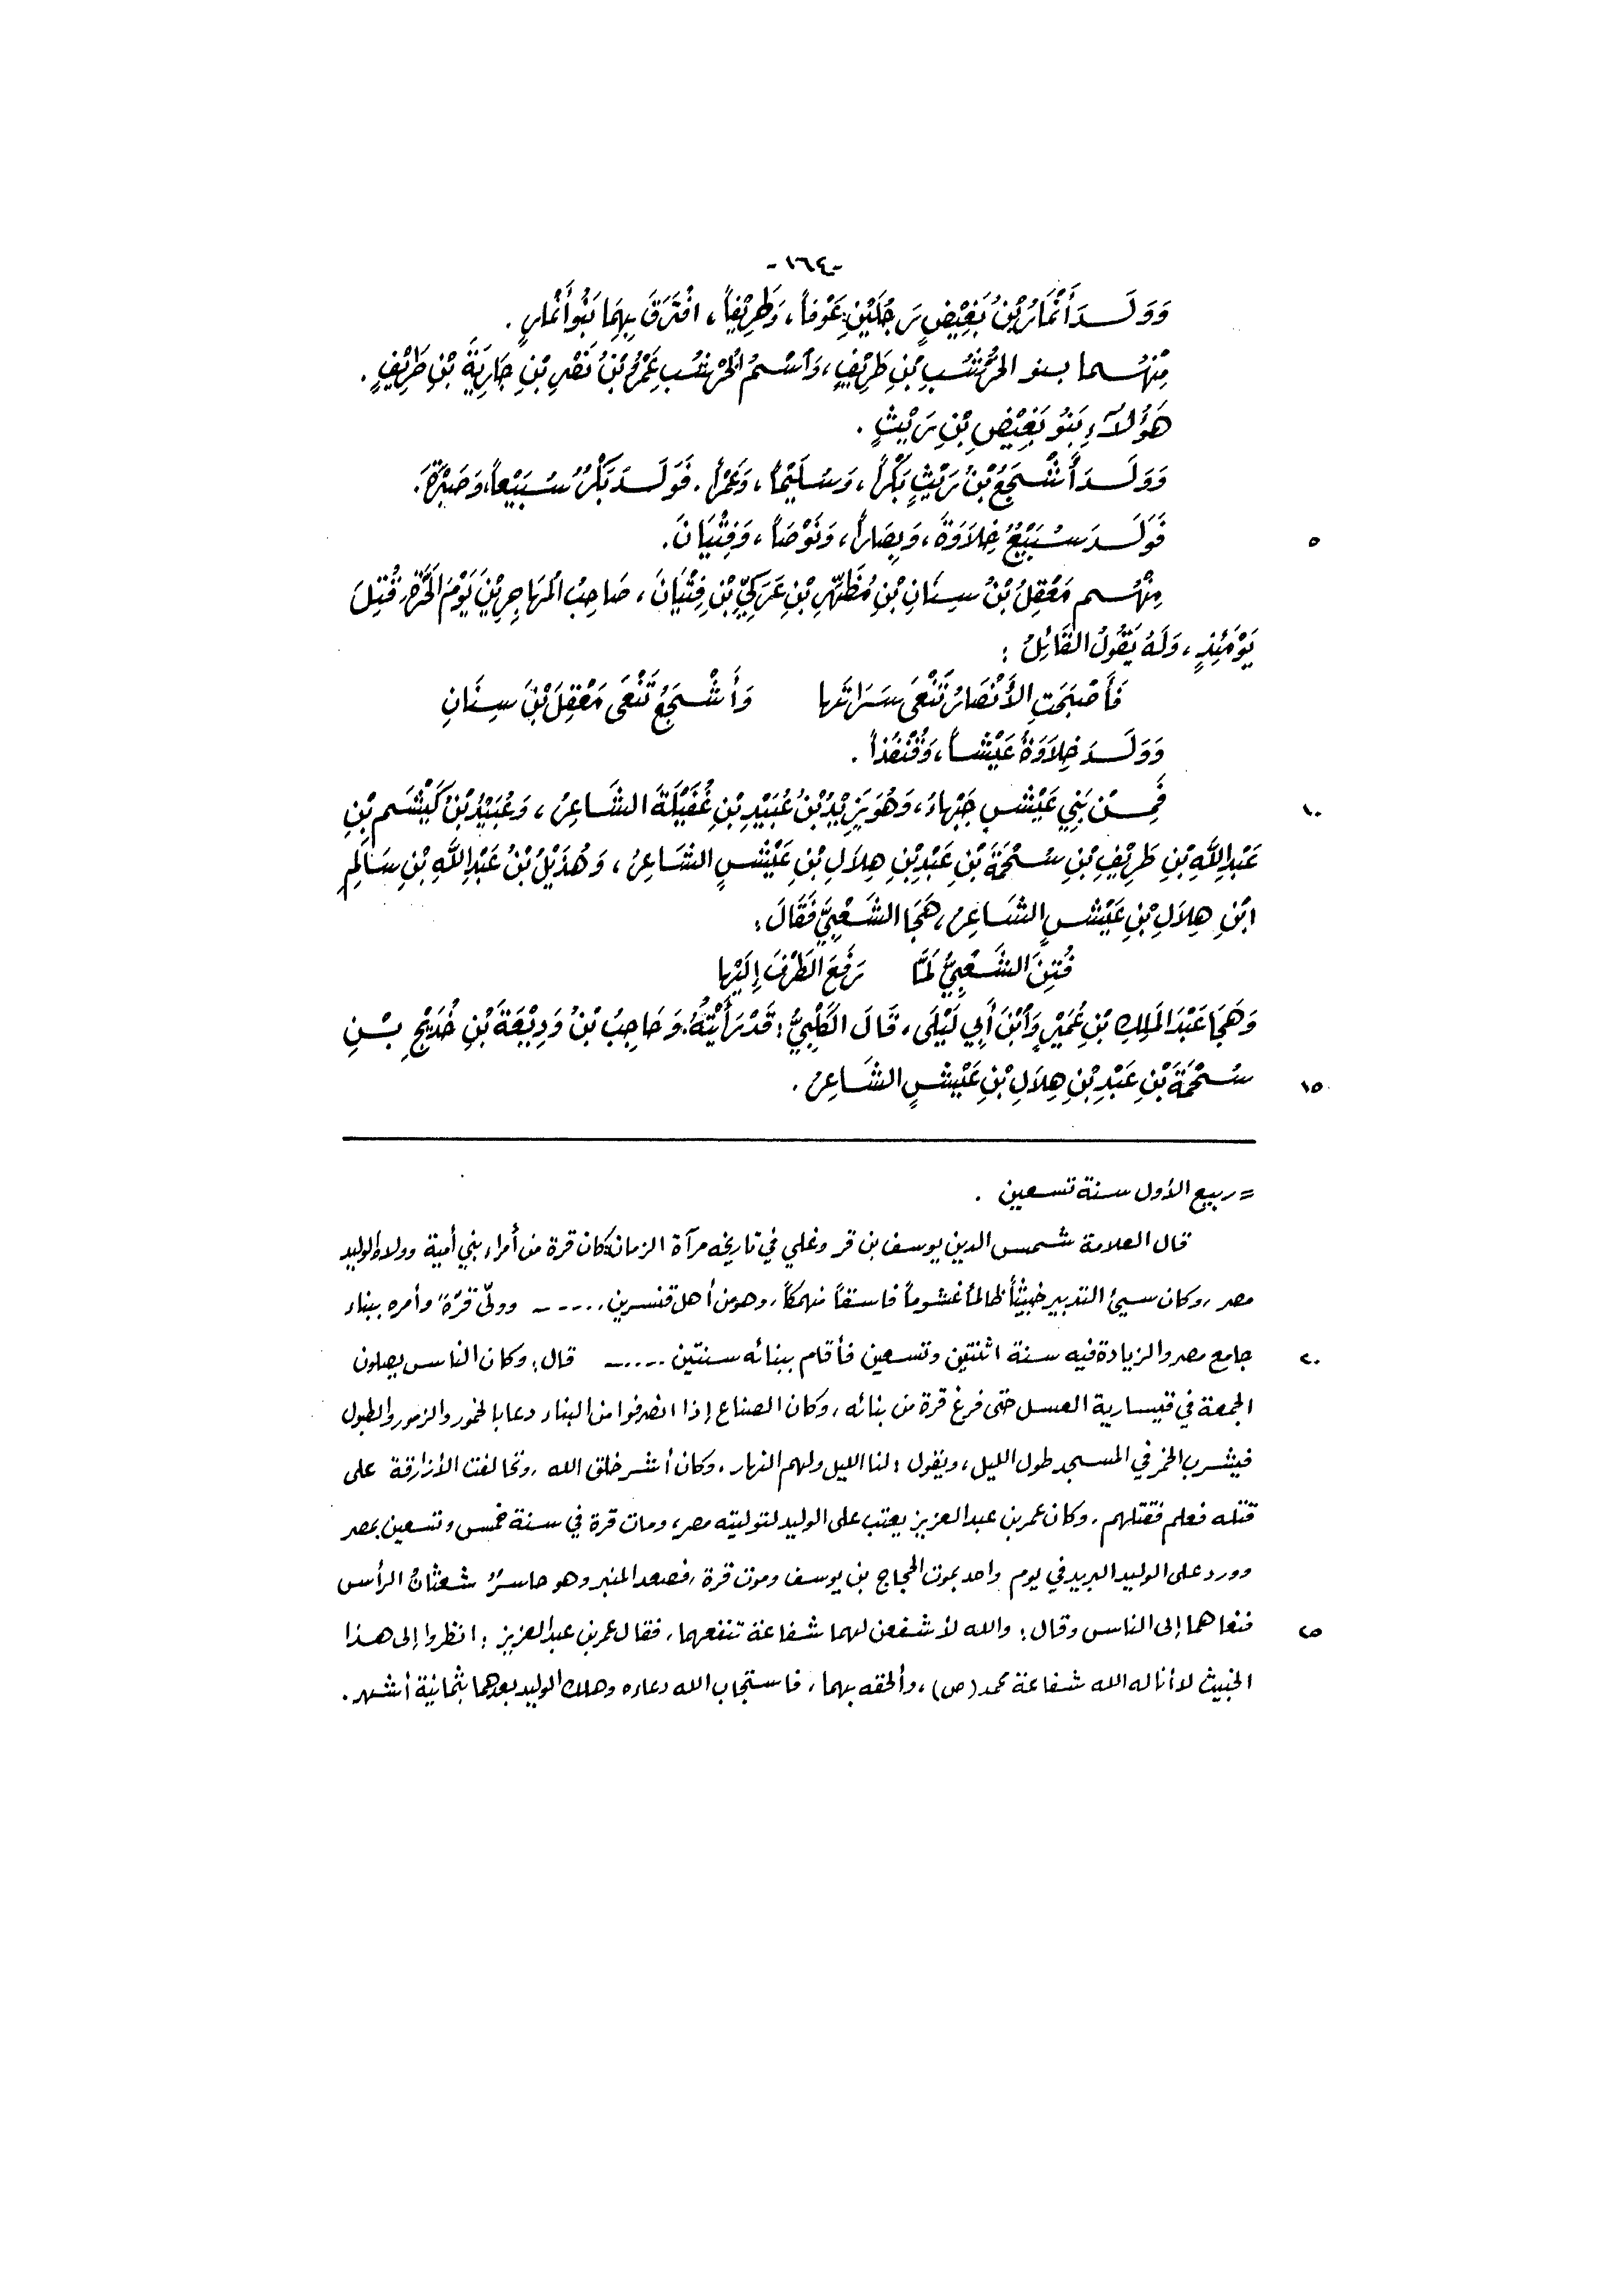 -١٦٤-
وَوَلَدَ أَنْمَارُ بْنُ بَغِيْضٍ رَجُلَيْنِ: عَوْفاً، وَطَرِيْفاً، افْتَرَقَ بِهِمَا بَنُو أَنْمَارٍ.
مِنْهُمَا بنو الحُرْشُبِ بْنِ طَرِيْفٍ، وَاسْمُ الحُرْشُبِ عَمْرُو بْنُ نَصْرِ بْنِ جَارِيَةَ بْنِ طَرِيْفٍ.
هَؤُلاَءِ بَنُو بَغِيْضِ بْنِ رَيْثٍ.
وَوَلَدَ أَشْجَعُ بْنُ رَيْثٍ بَكْراً، وَسُلَيْماً، وَعَمْراً. فَوَلَدَ بَكْرٌ سُبَيْعاً، وَصَبْرَةَ.
٥ فَوَلَدَ سُبَيْعٌ خِلاَوَةَ، وَبِصَاراً، وَنَوْصَاً، وَفِتْيَانَ.
مِنْهُم مَعْقِلُ بْنُ سِنَانِ بْنِ مُظَهِّرِ بْنِ عَرَكِيِّ بْنِ فِتْيَانَ، صَاحِبُ المُهَاجِرِيْنَ يَوْمَ الحَرَّةِ، قُتِلَ
يَوْمَئِذٍ، وَلَهُ يَقُولُ القَائِلُ:
فَأَصْبَحَتِ الأَنْصَارُ تَنْعَى سَرَاتَها وَأَشْجَعُ تَنْعَى مَعْقِلَ بْنَ سِنَانِ
وَوَلَدَ خِلاَوَةُ عَيْشاً، وَقُنْفُذاً.
١٠ فَمِنْ بَنِي عَيْشٍ جَبْهَاءُ، وَهُوَ يَزِيْدُ بْنُ عُبَيْدِ بْنِ غُفَيْلَةَ الشَّاعِرُ، وَعُبَيْدُ بْنُ كَيْشَم بْنِ
عَبْدِ اللَّهِ بْنِ طَرِيْفِ بْنِ سُحْمَةَ بْنِ عَبْدِ بْنِ هِلاَلِ بْنِ عَيْشٍ الشَّاعِرُ، وَهُذَيْلُ بْنُ عَبْدِ اللَّهِ بْنِ سَالِمِ
ابْنِ هِلاَلِ بْنِ عَيْشٍ الشَّاعِرُ، هَجَا الشَّعْبِيَّ فَقَالَ:
فُتِنَ الشَّعْبِيُّ لَمَّا رَفَعَ الطَّرْفَ إِلَيْها
وَهَجَا عَبْدَ المَلِكِ بْنَ عُمَيْرٍ وَابْنَ أَبِي لَيْلَى، قَالَ الكَلْبِيُّ: قَدْ رَأَيْتُهُ، وَحَاجِبُ بْنُ وَدِيْعَةَ بْنِ خُدَيْجِ بْنِ
١٥ سُحْمَةَ بْنِ عَبْدِ بْنِ هِلاَلِ بْنِ عَيْشٍ الشَّاعِرُ.
= ربيع الأول سنة تسعين .
قال العلامة شمس الدين يوسف بن قز وغلي في تاريخه مرآة الزمان: كان قرة من أمراء بني أمية وولاه الوليد
مصر، وكان سيئ التدبير خبيثاً ظالماً غشوماً فاسقاً منهمكاً، وهو من أهل قنسرين..... وولّى قرّة وأمره ببناء
٢٠ جامع مصر والزيادة فيه سنة اثنتين وتسعين فأقام ببنائه سنتين ..... قال: وكان الناس يصلون
الجمعة في قيسارية العسل حتى فرغ قرة من بنائه، وكان الصناع إذا انصرفوا من البناء دعا بالخمور والزمور والطبول
فيشرب الخمر في المسجد طول الليل، ويقول: لنا الليل ولهم النهار، وكان أشر خلق الله، وتحالفت الأزارقة على
قتله فعلم فقتلهم، وكان عمر بن عبد العزيز يعتب على الوليد لتوليته مصر، ومات قرة في سنة خمس وتسعين بمصر
وورد على الوليد البريد في يوم واحد بموت الحجاج بن يوسف وموت قرة، فصعد المنبر وهو حاسرٌ شعثانُ الرأس
٢٥ فنعاهما إلى الناس وقال: والله لأشفعن لهما شفاعة تنفعهما، فقال عمر بن عبد العزيز: انظروا إلى هذا
الخبيث لا أناله الله شفاعة محمد (ص)، وألحقه بهما، فاستجاب الله دعاءه وهلك الوليد بعدهما بثمانية أشهر.